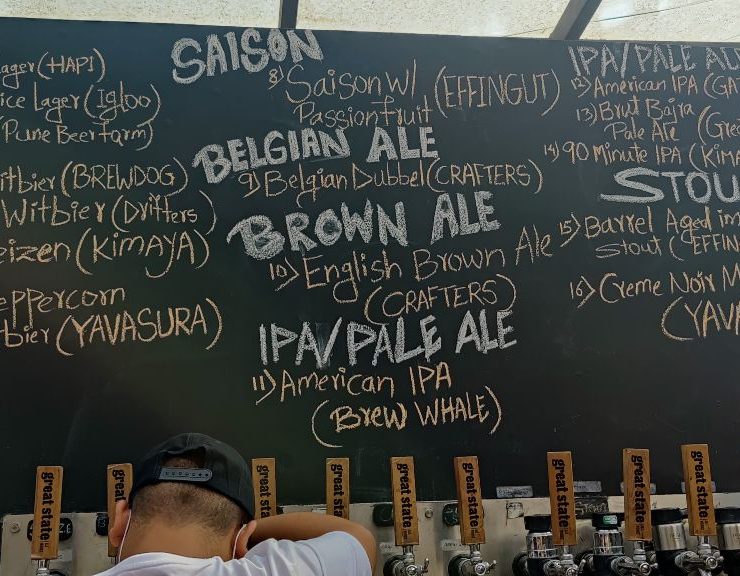 ager (HAPI)
ice Lager (Igloo)
(Pune Beer farm)
itbier (BREWDOG)
Witbier (Drifters)
eizen (KIMAYA)
eppercorn
bier (YAVASURA)
SAISON
8) Saison w/ (EFFINGUT)
Passionfruit
BELGIAN ALE
9) Belgian Dubbel (CRAFTERS)
BROWN ALE
10) English Brown Ale
(CRAFTERS)
IPA/PALE ALE
11) American IPA
(Brew WHALE)
IPA/PALE AL
12) American IPA (GA
13) Brut Bajra
Pale Ale (Gre
14) 90 Minute IPA (KIMA
STOU
15) Barrel Aged im
Stout (EFFIN
16) Creme Noir M
(YAV
great state
great
great st
great state
great state
great state
great state
great state
great state